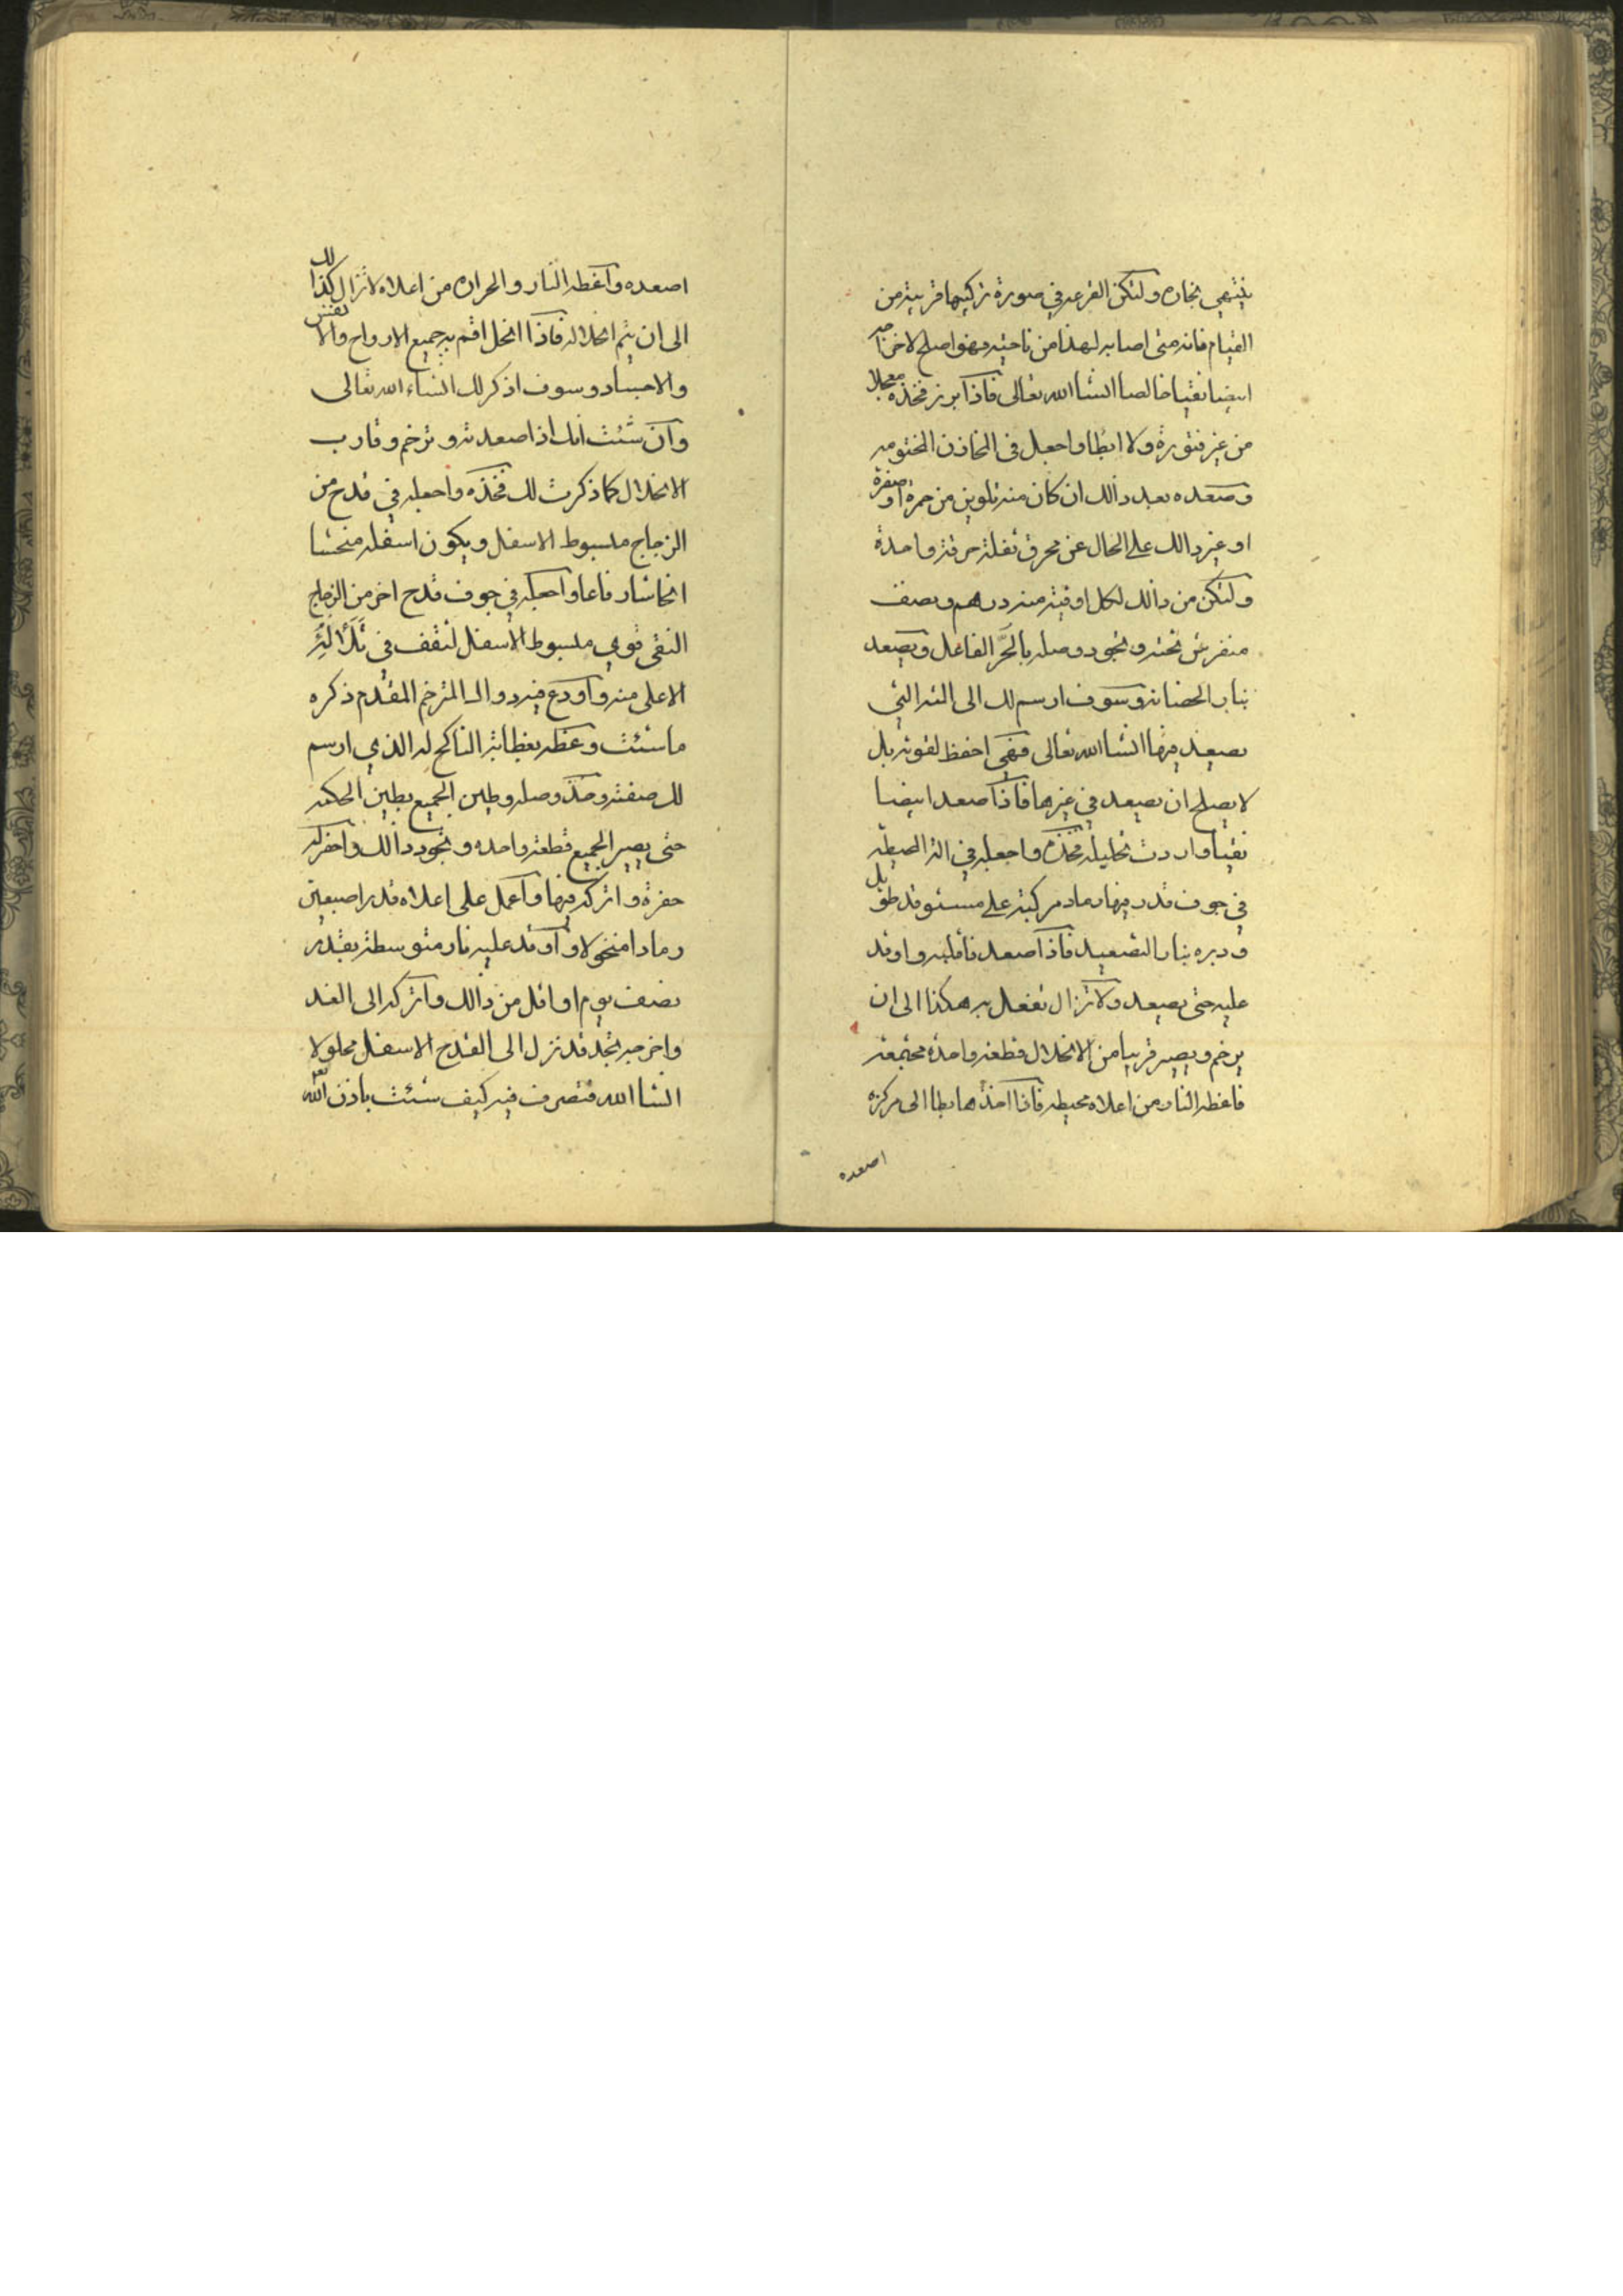 ينتهي بخاره ولتكن القرعه في صورة تركيبها قريبة من
القيام فانه متى اصابه لهذا من ناحيته فهو اصلح لاخراجه
ايضا نقيا خالصا انشا الله تعالى فاذا برز فخذه معجلا
من غير فتورة ولا ابطا واجعل في المخازن المختومه
وصعده بعد ذالك ان كان منه تلوين من حمرة او صفرة
او غير ذالك على الحال عن محرق ثفلته حرقة واحدة
ولتكن من ذالك لكل اوقية منه درهم ونصف
منفرش تحته وتجود وصله بالحر الفاعل ويصعد
بنار الحضانه وسوف ارسم لك الى اله التي
يصعد فيها انشا الله تعالى فهي احفظ لقوته بل
لا يصلح ان يصعد في غيرها فاذا صعد ابيضا
نقيا واردت تحليله فخذه واجعله في الة المحيطة
في جوف قدر فيها رماد مركبة على مستوقد طويل
ودبره بنار التصعيد فاذا اصعد فاقلبه واوقد
عليه حتى يصعد ولا تزال تفعل به هكذا الى ان
يرخم ويصير قريبا من الانحلال قطعة واحدة مجتمعة
فاعطه النار من اعلاه محيطه فاذا اخذ هابطا الى مركزه
اصعده
اصعده واعطه النار والحراره من اعلاه لا تزال كذالك
الى ان يتم انحلاله فاذا انحل اقم به جميع الارواح والانفس
والاجساد وسوف اذكر لك انشاء الله تعالى
وان شئت انك اذا صعدته وترخم وقارب
الانحلال كما ذكرت لك فخذه واجعله في قدح من
الزجاج مبسوط الاسفل ويكون اسفله منحشا
انحاشا رفاعا واجعله في جوف قدح اخر من الزجاج
النقي قوي مبسوط الاسفل لتقف في
الاعلى منه واودع فيه دوالك المترخم المقدم ذكره
ما شئت وغطه بغطايه الناكح له الذي ارسم
لك صفته وخذ وصله وطين الجميع بطين الحكمه
حتى يصير الجميع قطعة واحده وتجود ذالك واحفر له
حفرة واتركه فيها واعمل على اعلاه قدر اصبعين
رمادا منخولا واوقد عليه نار متوسطة بقدر
نصف يوم او اقل من ذالك واتركه الى الغد
واخرجه تجد قد نزل الى القدح الاسفل محلولا
انشا الله فتصرف فيه كيف شئت باذن الله تعم